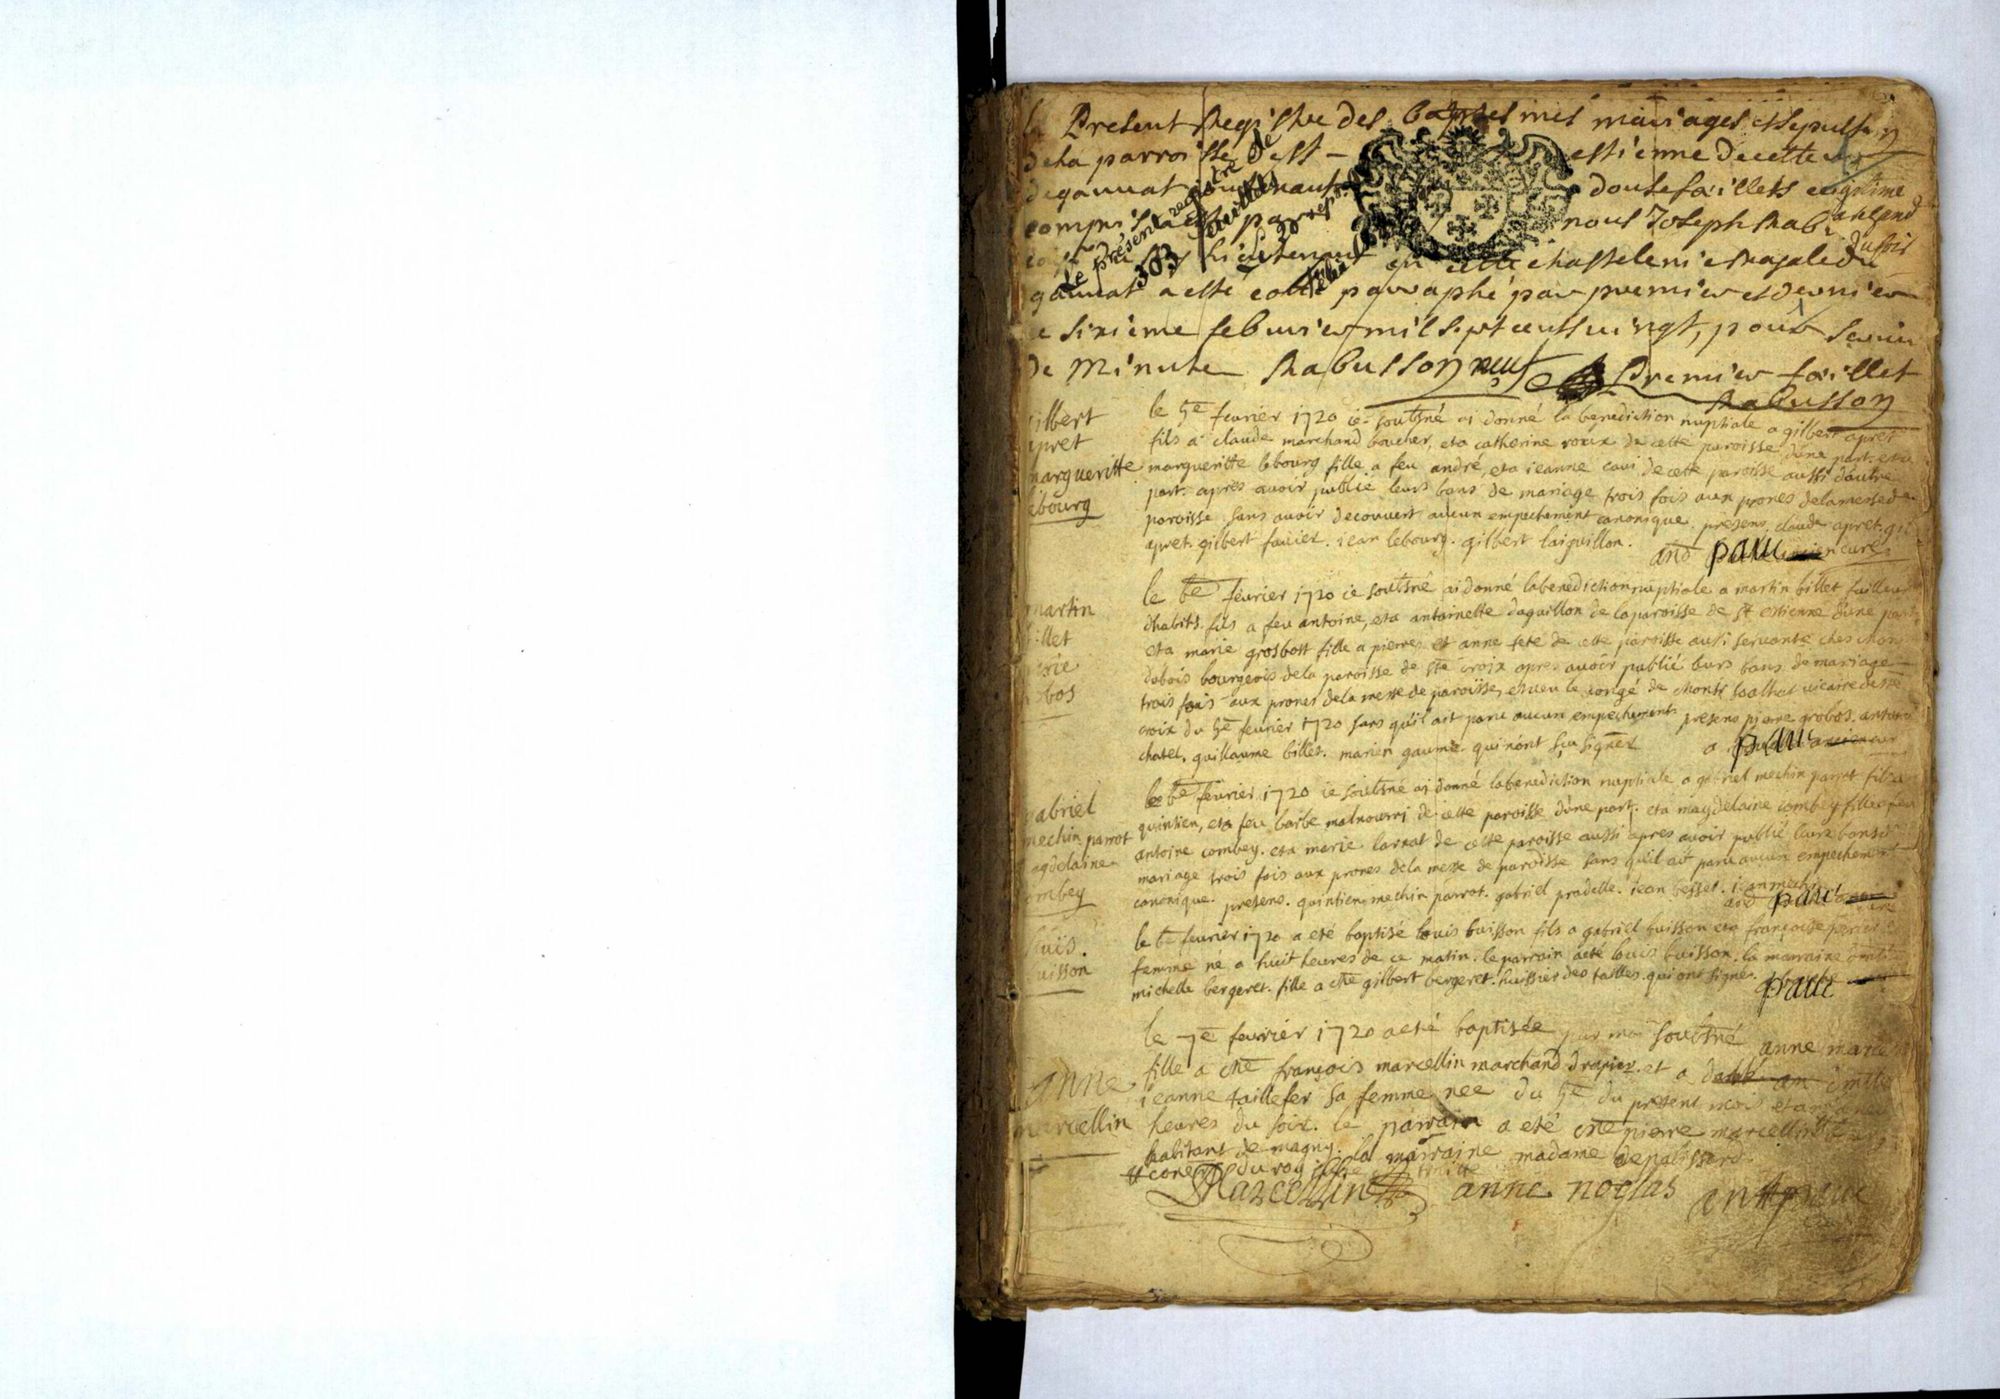 Present Registre des baptesmes mariages et sepultu
de la parroisse de st estienne de cette
de gannat contenant douse foeillets
compris par nous Joseph Rabu
Lieutenant en cette chastelenie Royale du
gannat a esté cotté parraphé par premier et dernier
le sixieme febvrier mil sept cents vingt, pour servir
de Minute Rabusson Premier foeillet
Rabusson
Le présent registre de
303 feuillets
gilbert
apret
margueritte
lebourg
le 5e fevrier 1720 ie soubsné ai donné la benediction nuptiale a gilbert apret
fils a claude marchand boucher, et a catherine roux de cette paroisse d'une part. et a
margueritte lebourg fille a feu andré, et a ieanne cavi de cette paroisse aussi d'autre
part. apres avoir publié leurs bans de mariage trois fois aux prones de la messe de
paroisse sans avoir decouvert aucun empechement canonique. presens claude apret. gil
apret. gilbert favier. iean lebourg. gilbert laiguillon.
martin
billet
marie
grobos
le 6e fevrier 1720 ie soubsné ai donné la benediction nuptiale a martin billet tailleur
d'habits fils a feu antoine, et a antoinette daguillon de la paroisse de st estienne d'une part
et a marie grosbost fille a pierre et anne feté de cette paroisse aussi servante ches mons
dubois bourgeois de la paroisse de ste croix apres avoir publié leurs bans de mariage
trois fois aux prones de la messe de paroisse, et veu le congé de monsr vicaire de ste
croix du 5e fevrier 1720 sans qu'il ait paru aucun empechement presens pierre grobos. antoine
chatel. guillaume billet. marien gaume. qui n'ont sçu signer
gabriel
mechin parrot
magdelaine
combey
le 6e fevrier 1720 ie soubsné ai donné la benediction nuptiale a gabriel mechin parrot fils a
quintien, et a feu barbe malnourri de cette paroisse d'une part. et a magdelaine combey fille a feu
antoine combey. et a marie larrat de cette paroisse aussi apres avoir publié leurs bans de
mariage trois fois aux prones de la messe de paroisse sans qu'il ait paru aucun empechement
canonique. presens. quintien mechin parrot. gabriel pradelle. iean besset. iean mechin
louïs.
buisson
le 6e fevrier 1720 a eté baptisé louis buisson fils a gabriel buisson et a françoise perier
femme né a huit heures de ce matin. le parrain a eté louis buisson. la marraine
michelle bergeret. fille a me gilbert bergeret. huissier des tailles. qui ont signés.
anne
marcellin
le 7e fevrier 1720 a eté baptisée par moi soubsné anne marcellin
fille a me françois marcellin marchand drapier. et a
ieanne taillefer sa femme née du 5e du present mois et an
heures du soir. le parrain a eté me pierre marcellin
habitant de magny. la marraine madame de palissard.
Marcellin anne noelas